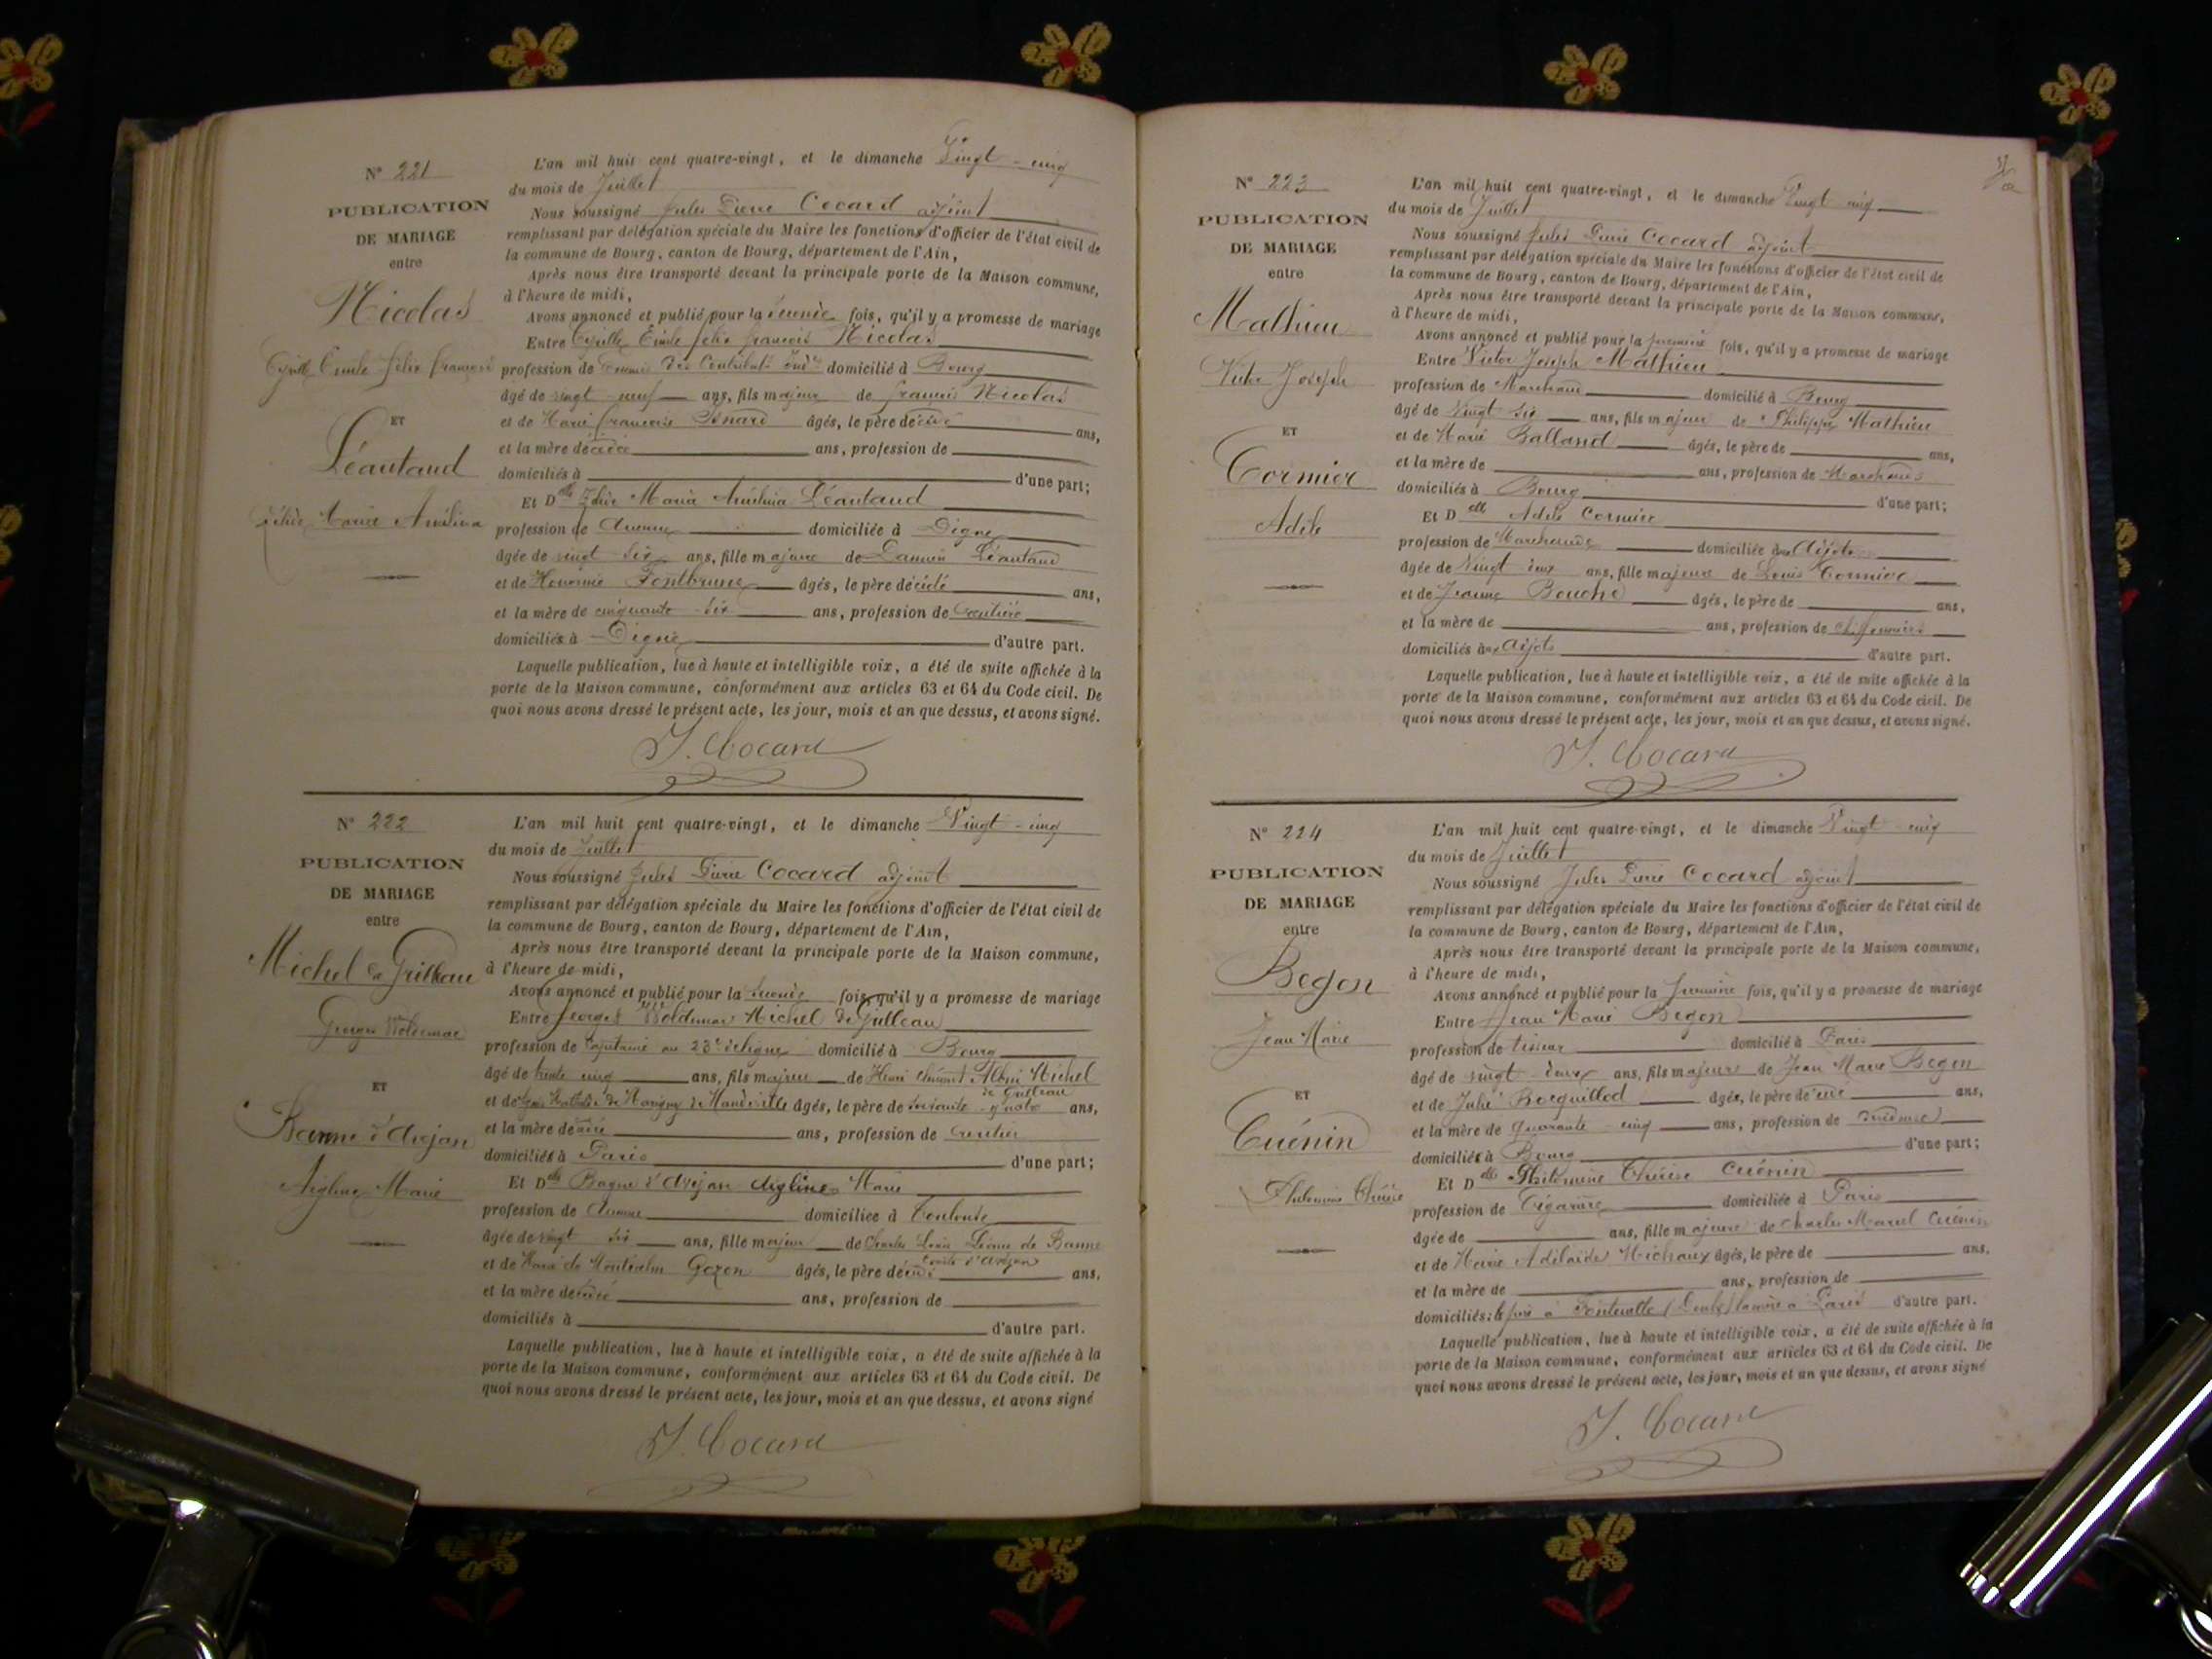 N° 221
PUBLICATION
DE MARIAGE
entre
Nicolas
Cyrille Emile félix françois
ET
Léautaud
Marie Amélina
L'an mil huit cent quatre-vingt, et le dimanche Vingt-cinq
du mois de Juillet
Nous soussigné Jules Pierre Cocard adjoint
remplissant par délégation spéciale du Maire les fonctions d'officier de l'état civil de
la commune de Bourg, canton de Bourg, département de l'Ain,
Après nous être transporté devant la principale porte de la Maison commune,
à l'heure de midi,
Avons annoncé et publié pour la seconde fois, qu'il y a promesse de mariage
Entre Cyrille Emile félix françois Nicolas
profession de Commis des Contribut. Ind. domicilié à Bourg
âgé de vingt-neuf ans, fils majeur de françois Nicolas
et de Marie françoise âgés, le père décédé ans,
et la mère décédée ans, profession de
domiciliés à d'une part;
Et Dlle Marie Amélina Léautaud
profession de Aucune domiciliée à Digne
âgée de vingt-six ans, fille majeure de Damien Léautaud
et de Honorine Fontbrune âgés, le père décédé ans,
et la mère de cinquante-six ans, profession de rentière
domiciliés à Digne d'autre part.
Laquelle publication, lue à haute et intelligible voix, a été de suite affichée à la
porte de la Maison commune, conformément aux articles 63 et 64 du Code civil. De
quoi nous avons dressé le présent acte, les jour, mois et an que dessus, et avons signé.
J. Cocard
N° 222
PUBLICATION
DE MARIAGE
entre
Michel de Grilleau
Georges Woldemar
ET
Banne d'Avejan
Aigline Marie
L'an mil huit cent quatre-vingt, et le dimanche Vingt-cinq
du mois de Juillet
Nous soussigné Jules Pierre Cocard adjoint
remplissant par délégation spéciale du Maire les fonctions d'officier de l'état civil de
la commune de Bourg, canton de Bourg, département de l'Ain,
Après nous être transporté devant la principale porte de la Maison commune,
à l'heure de midi,
Avons annoncé et publié pour la seconde fois, qu'il y a promesse de mariage
Entre Georges Woldemar Michel de Grilleau
profession de Capitaine au 23e de ligne domicilié à Bourg
âgé de trente cinq ans, fils majeur de Henri Albin Michel
de Grilleau
et de de Marigny de Mandeville âgés, le père de soixante-quatre ans,
et la mère décédée ans, profession de rentier
domiciliés à Paris d'une part;
Et Dlle Bagne d'Avejan Aigline Marie
profession de Aucune domiciliée à Toulouse
âgée de vingt six ans, fille majeure de Charles Louis de Banne
comte d'Avejan
et de Marie de Montcalm Gozon âgés, le père décédé ans,
et la mère décédée ans, profession de
domiciliés à d'autre part.
Laquelle publication, lue à haute et intelligible voix, a été de suite affichée à la
porte de la Maison commune, conformément aux articles 63 et 64 du Code civil. De
quoi nous avons dressé le présent acte, les jour, mois et an que dessus, et avons signé
J. Cocard
N° 223
PUBLICATION
DE MARIAGE
entre
Mathieu
Victor Joseph
ET
Cormier
Adèle
L'an mil huit cent quatre-vingt, et le dimanche Vingt cinq
du mois de Juillet
Nous soussigné Jules Pierre Cocard adjoint
remplissant par délégation spéciale du Maire les fonctions d'officier de l'état civil de
la commune de Bourg, canton de Bourg, département de l'Ain,
Après nous être transporté devant la principale porte de la Maison commune,
à l'heure de midi,
Avons annoncé et publié pour la première fois, qu'il y a promesse de mariage
Entre Victor Joseph Mathieu
profession de Marchand domicilié à Bourg
âgé de Vingt six ans, fils majeur de Philippe Mathieu
et de Marie Balland âgés, le père de ans,
et la mère de ans, profession de Marchands
domiciliés à Bourg d'une part;
Et Dlle Adèle Cormier
profession de Marchande domiciliée à
âgée de Vingt deux ans, fille majeure de Louis Cormier
et de Jeanne Bouché âgés, le père de ans,
et la mère de ans, profession de
domiciliés à d'autre part.
Laquelle publication, lue à haute et intelligible voix, a été de suite affichée à la
porte de la Maison commune, conformément aux articles 63 et 64 du Code civil. De
quoi nous avons dressé le présent acte, les jour, mois et an que dessus, et avons signé.
J. Cocard
N° 224
PUBLICATION
DE MARIAGE
entre
Begon
Jean Marie
ET
Cuénin
Philomène Thérèse
L'an mil huit cent quatre-vingt, et le dimanche Vingt-cinq
du mois de Juillet
Nous soussigné Jules Pierre Cocard adjoint
remplissant par délégation spéciale du Maire les fonctions d'officier de l'état civil de
la commune de Bourg, canton de Bourg, département de l'Ain,
Après nous être transporté devant la principale porte de la Maison commune,
à l'heure de midi,
Avons annoncé et publié pour la première fois, qu'il y a promesse de mariage
Entre Jean Marie Begon
profession de tisseur domicilié à Paris
âgé de vingt-deux ans, fils majeur de Jean Marie Begon
et de Julie Bocquillod âgés, le père décédé ans,
et la mère de quarante-cinq ans, profession de
domiciliés à Bourg d'une part;
Et Dlle Philomène Thérèse Cuénin
profession de Cigarière domiciliée à Paris
âgée de ans, fille majeure de Charles Marcel Cuénin
et de Marie Adélaïde Michaux âgés, le père de ans,
et la mère de ans, profession de
domiciliés: le père à (Doubs) la mère à Paris d'autre part.
Laquelle publication, lue à haute et intelligible voix, a été de suite affichée à la
porte de la Maison commune, conformément aux articles 63 et 64 du Code civil. De
quoi nous avons dressé le présent acte, les jour, mois et an que dessus, et avons signé
J. Cocard